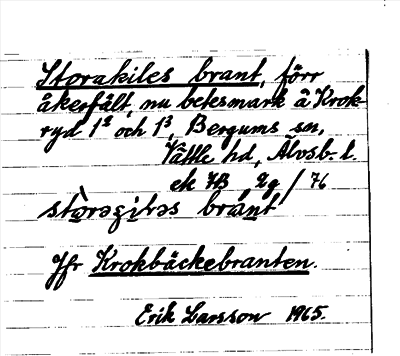 Storakiles brant, förr
åkerfält, nu betesmark å Krok-
ryd 1² och 1³, Bergums sn,
Vättle hd, Älvsb. l.
ek 7B, 2g/76
brant
Jfr Krokbäckebranten.
Erik Larsson 1965.